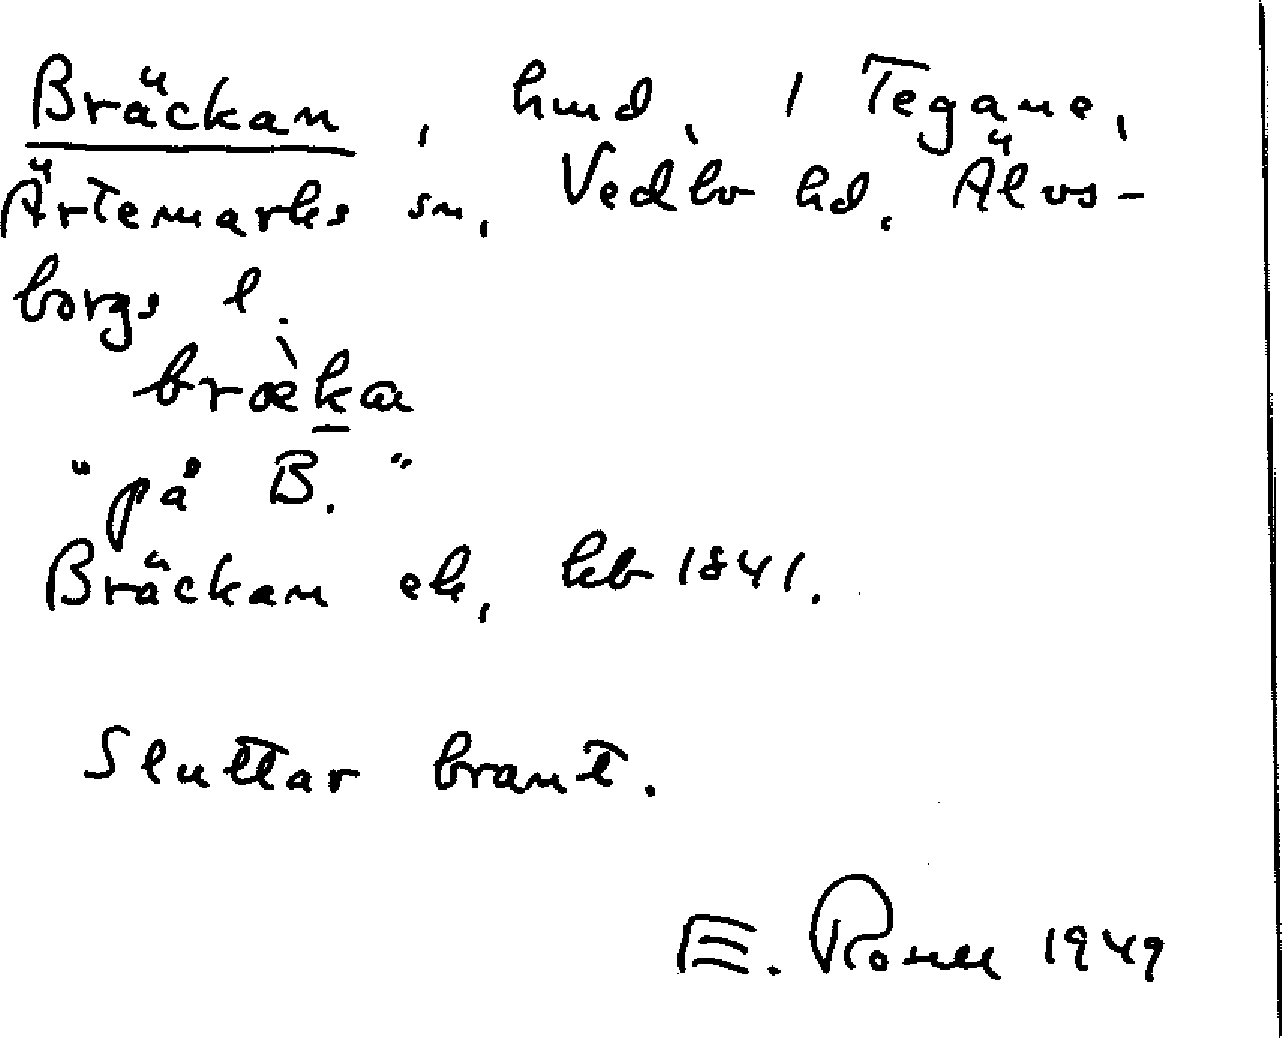 Bräckan, hmd, 1 Tegane,
Ärtemarks sn, Vedbo hd. Älvs-
borgs l.
bræ̀ka
"på B."
Bräckan ek, kb 1841.
Sluttar brant.
E. 1949